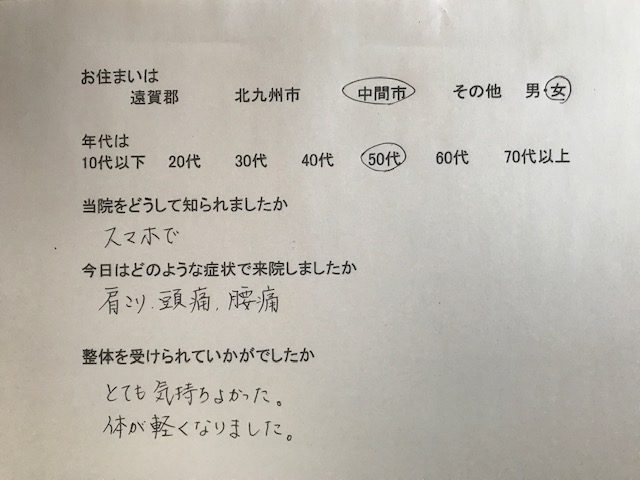 お住まいは
遠賀郡 北九州市 中間市 その他 男・女
年代は
10代以下 20代 30代 40代 50代 60代 70代以上
当院をどうして知られましたか
スマホで
今日はどのような症状で来院しましたか
肩こり、頭痛、腰痛
整体を受けられていかがでしたか
とても気持ちよかった。
体が軽くなりました。